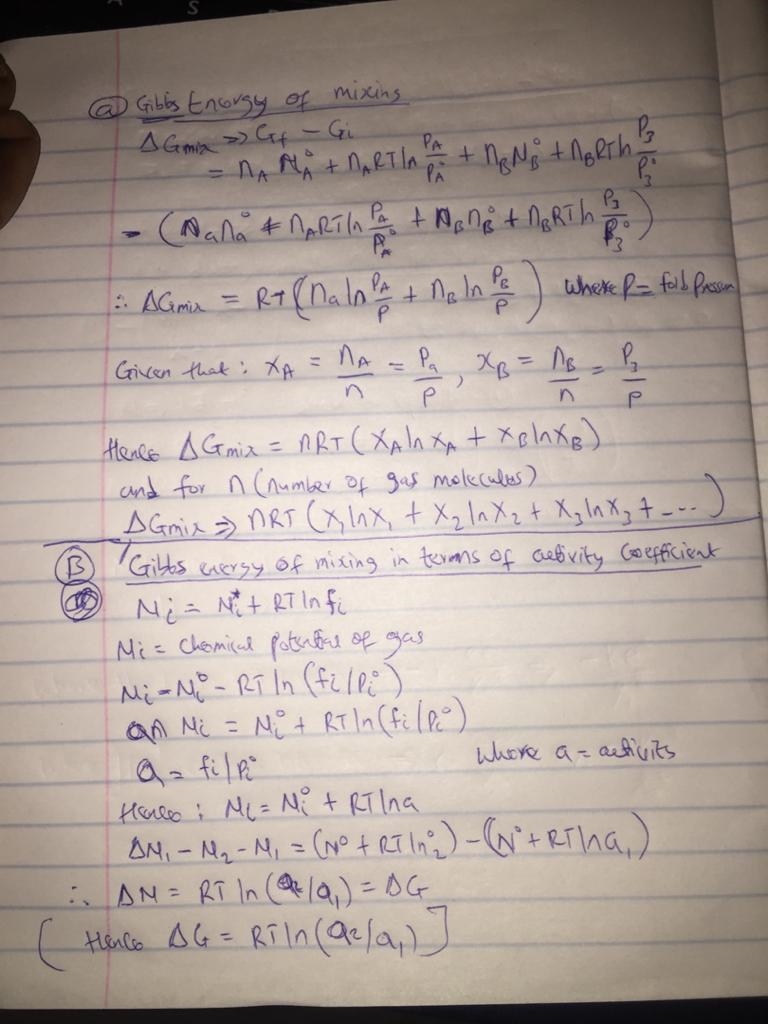 S
ⓐ Gibbs Energy of mixing
ΔGmix => Gf - Gi
= nA μA° + nART ln PA/PA° + nB μB° + nBRT ln P3/P3°
- (μa na° + nART ln PA/PA° + μB nB° + nBRT ln P3/P3°)
∴ ΔGmix = RT (na ln PA/P + nB ln PB/P) where P = Pressure
Given that : xA = nA/n = Pa/P , xB = nB/n = P3/P
Hence ΔGmix = nRT (xA ln xA + xB ln xB)
and for n (number of gas molecules)
ΔGmix => nRT (x1 ln x1 + x2 ln x2 + x3 ln x3 + ---)
Ⓑ Gibbs energy of mixing in terms of activity Coefficient
μi = μi* + RT ln fi
μi = Chemical potential of gas
μi = μi° - RT ln (fi/Pi°)
μi = μi° + RT ln (fi/Pi°)
a = fi/Pi° where a = activity
Hence : μi = μi° + RT ln a
Δμ1 - μ2 - μ1 = (μ° + RT ln 2°) - (μ° + RT ln a1)
∴ Δμ = RT ln (a2/a1) = ΔG
[ Hence ΔG = RT ln (a2/a1) ]